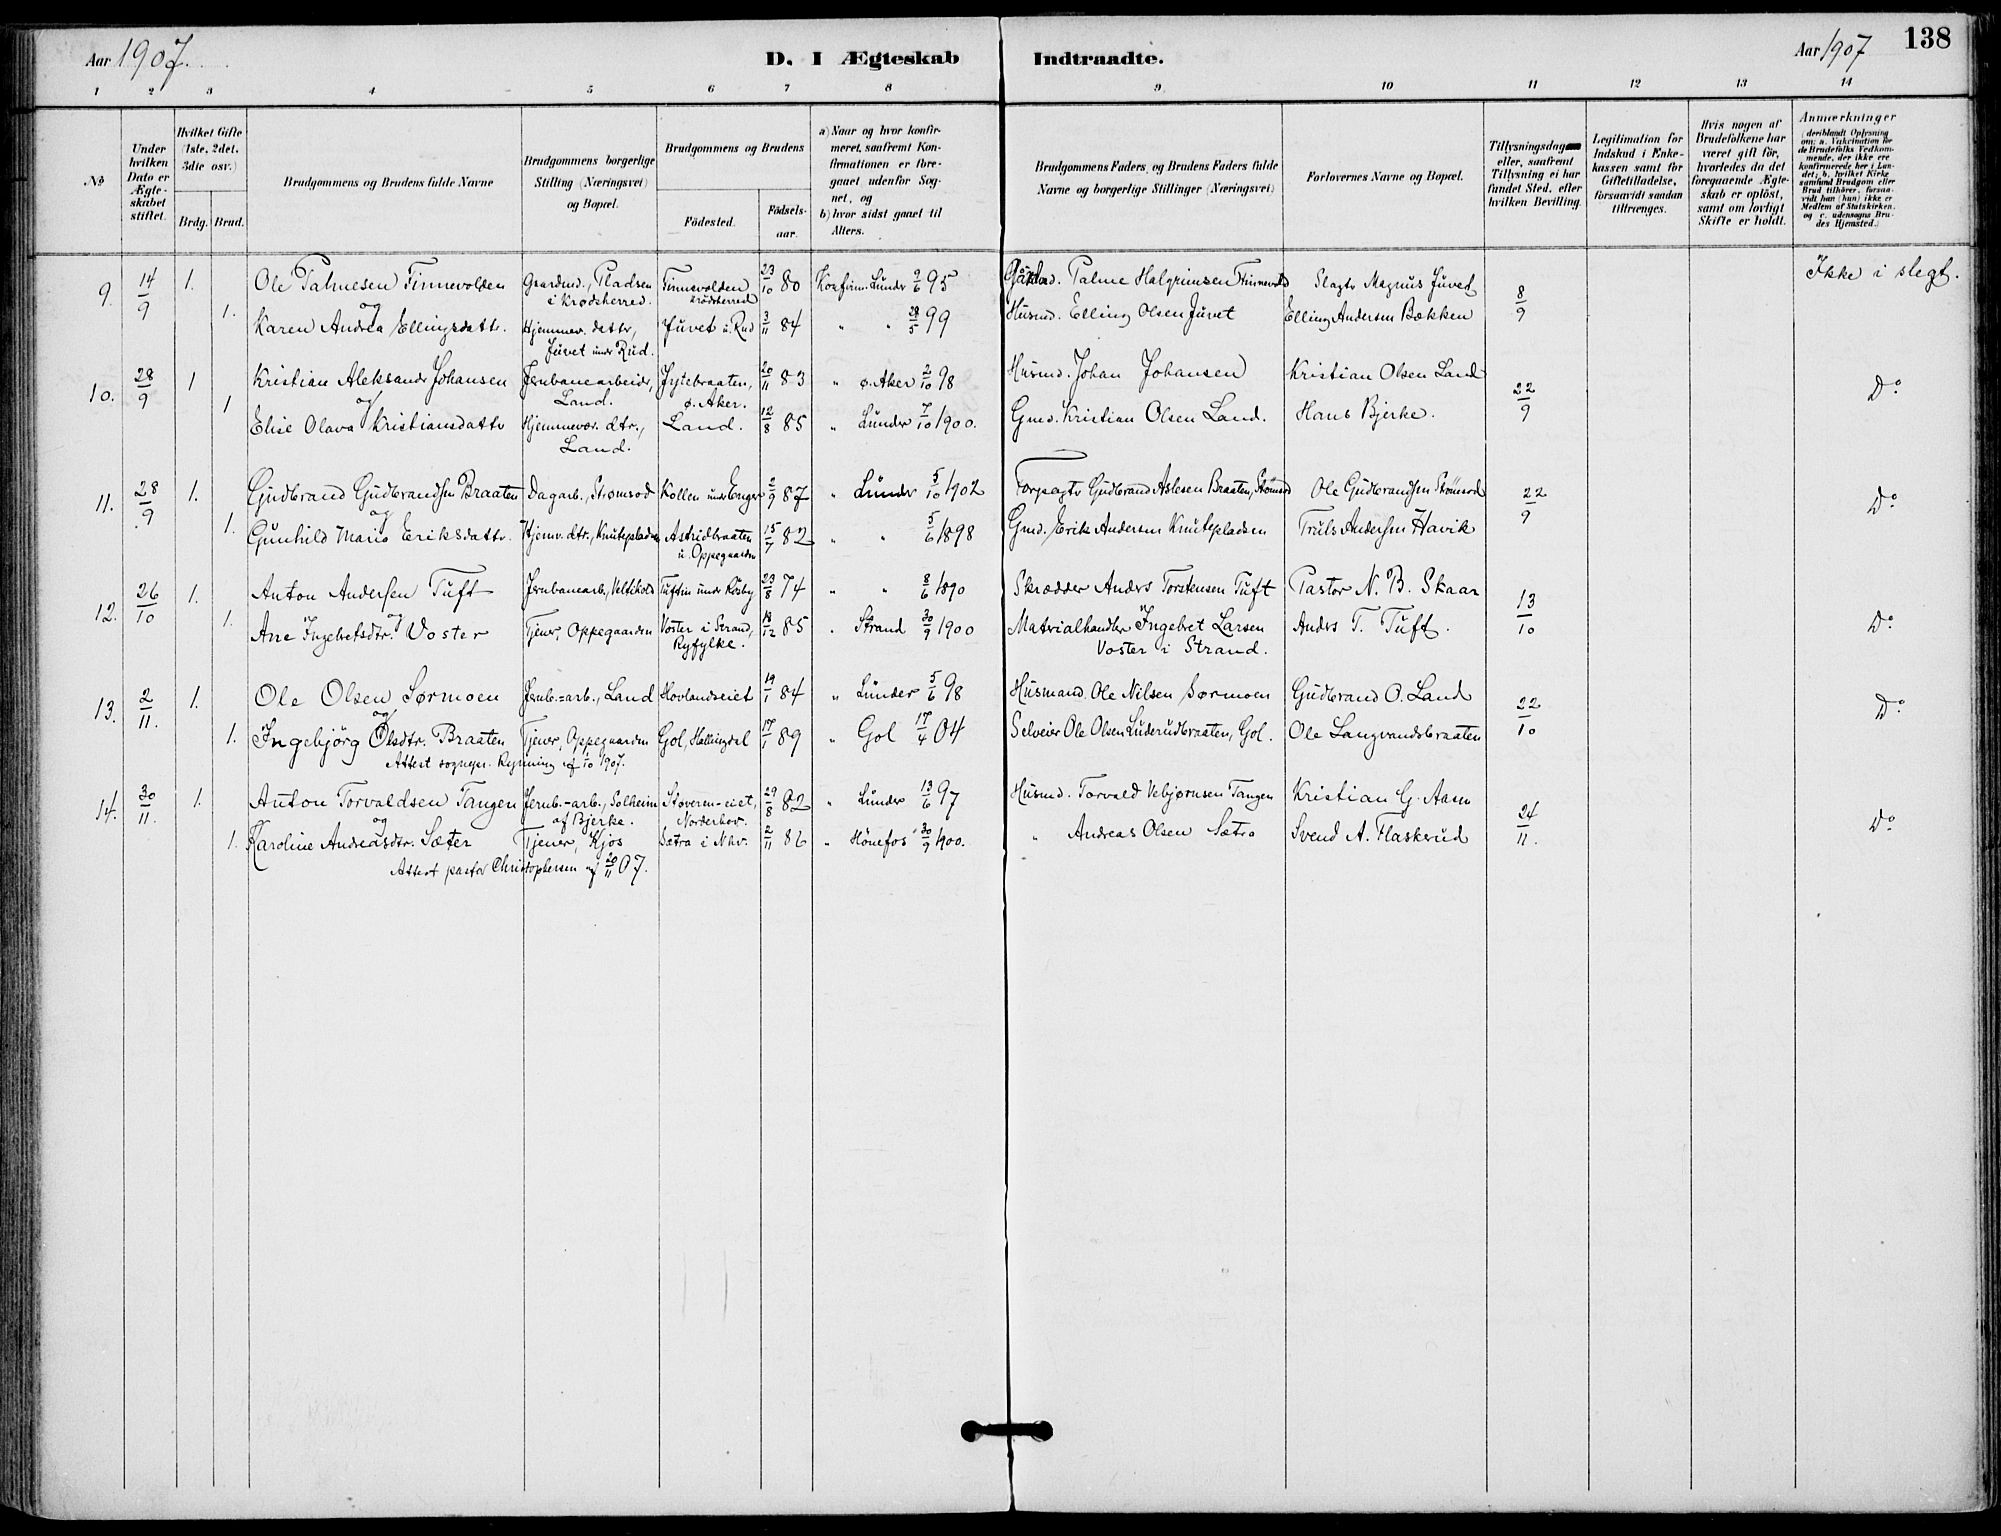 Aar 1907.
D. I Ægteskab Indtraadte.
Aar 1907
138
1 2 3 4 5 6 7 8 9 10 11 12 13 14
No
Under hvilken Dato er Ægteskabet stiftet.
Hvilket Gifte (1ste, 2det, 3die osv.)
Brdg. Brud.
Brudgommens og Brudens fulde Navne
Brudgommens borgerlige Stilling (Næringsvei) og Bopæl.
Brudgommens og Brudens
Födested. Födselsaar.
a) Naar og hvor konfirmeret, saafremt Konfirmationen er foregaaet udenfor Sognet, og
b) hvor sidst gaaet til Alters.
Brudgommens Faders og Brudens Faders fulde Navne og borgerlige Stillinger (Næringsvei)
Forlovernes Navne og Bopæl.
Tillysningsdagen eller, saafremt Tillysning ei har fundet Sted, efter hvilken Bevilling.
Legitimation for Indskud i Enkekassen samt for Giftetilladelse, forsaavidt saadan tiltrænges.
Hvis nogen af Brudefolkene har været gift för, hvorledes da det foregaaende Ægteskab er oplöst, samt om lovligt Skifte er holdt.
Anmærkninger
(deriblandt Oplysning om: a. Vakcination for de Brudefolks Vedkommende, der ikke ere konfirmerede her i Landet; b. hvilket Kirkesamfund Brudgom eller Brud tilhörer, forsaavidt han (hun) ikke er Medlem af Statskirken, og c. udensogns Brudes Hjemsted.)
9. 14/9 1. Ole Palmesen Finnevolden Gaardmd., Pladsen i Krødsherred. Finnevolden Krødsherred 23/10 80 Konfirm. Lunder 2/6 95 Palme Halgrimsen Finnevold Slagter Magnus Juvet 8/9 Ikke i slegt.
og
1. Karen Andrea Ellingsdatter. Hjemmev. datter, Juvet under Rud. Juvet u. Rud 3/11 84 " " 28/5 99 Husmd. Elling Olsen Juvet Elling Andersen Bækken
10. 28/9 1 Kristian Aleksander Johansen Jernbanearbeider, Land. Jytebraaten, ø. Aker. 20/11 83 " ø. Aker 2/10 98 Husmd. Johan Johansen Kristian Olsen Land 22/9 Do
og
1 Elise Olava Kristiansdatter Hjemmevær. dtr., Land. Land. 12/8 85 " Lunder 7/10 1900. Gmd. Kristian Olsen Land. Hans Bjerke.
11. 28/9 1. Gudbrand Gudbrandsen Braaten Dagarb., Strømsod Kollen under Enger 2/9 87 " Lunder 5/10 1902 Forpagter Gudbrand Aslesen Braaten, Strömsod Ole Gudbrandsen Strömsod 22/9 Do
og
1. Gunhild Maria Eriksdatter. Hjemv. dtr., Knutepladsen Astridbraaten u. Oppegaarden 15/7 82 " " 5/6 1898 Gmd. Erik Andersen Knutepladsen Truls Andersen Havik
12. 26/10 1. Anton Andersen Tuft Jernbanearb., Veltikold Tuftin under Rösby 23/8 74 " " 8/6 1890 Skrædder Anders Torstensen Tuft Pastor N. B. Skaar 13/10 Do
og
1. Ane Ingebretsdtr. Voster Tjener, Oppegaarden Voster i Strand, Ryfylke. 18/12 85 " Strand 30/9 1900 Materialhandler Ingebret Larsen Voster i Strand. Anders T. Tuft.
13. 2/11. 1. Ole Olsen Sørmoen Jernb.-arb., Land Hovlandseiet 19/1 84 " Lunder 5/6 98 Husmand. Ole Nilsen Sørmoen Gudbrand O. Land 22/10 Do
og
1. Ingebjörg Olsdtr. Braaten Tjener, Oppegaarden Gol, Hallingdal 17/1 89 " Gol 17/4 04 Selveier Ole Olsen Luderudbraaten, Gol. Ole Langvandsbraaten
Attest sognepr. Rynning af 11/10 1907.
14. 30/11. 1. Anton Torvaldsen Tangen Jernb.-arb., Solheim af Bjerke. Stöveren-eiet, Norderhov. 29/8 82 " Lunder 13/6 97 Husmd. Torvald Vebjørnsen Tangen Kristian G. Aasen 24/11. Do
og
1. Karoline Andreasdtr. Sæter Tjener, Kjos Sætra i Nhv. 2/11 86 " Hönefos 30/9 1900. " Andreas Olsen Sætra Svend A. Flaskerud
Attest pastor Christophersen af 20/11 07.